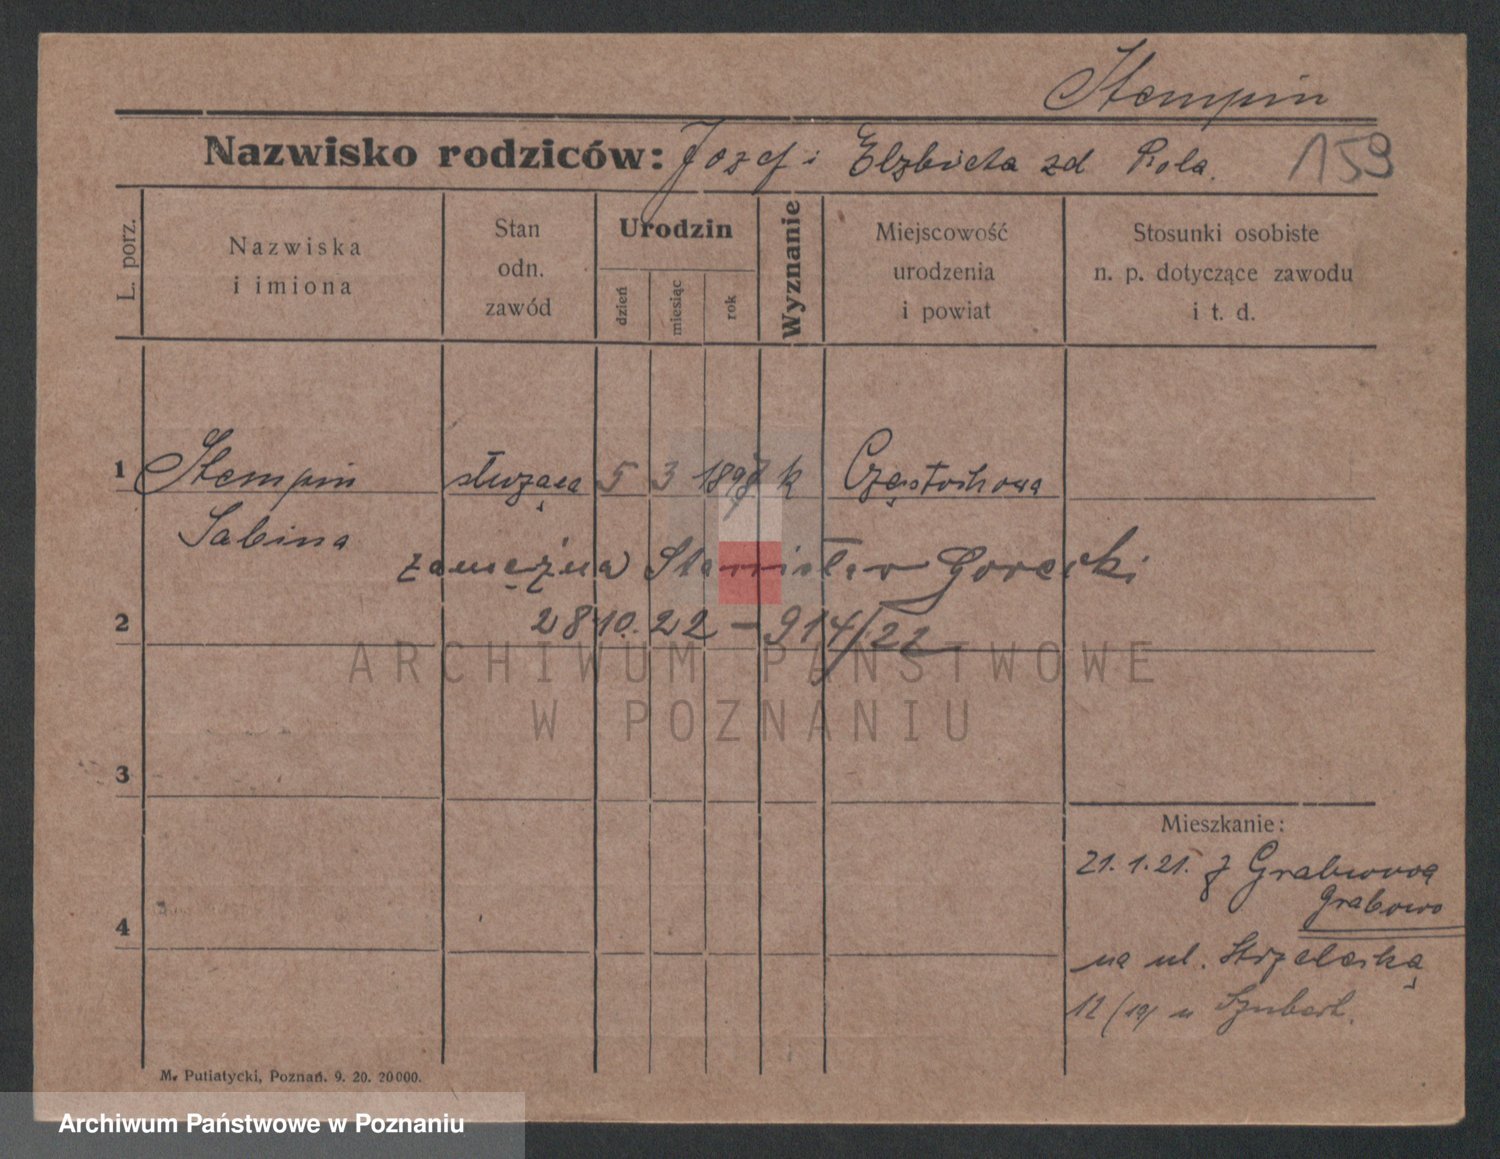 Stempin
Nazwisko rodziców: Jozef i Elzbieta zd Rola.
159
L. porz.
Nazwiska
i imiona
Stan
odn.
zawód
Urodzin
dzień
miesiąc
rok
Wyznanie
Miejscowość
urodzenia
i powiat
Stosunki osobiste
n. p. dotyczące zawodu
i t. d.
1 Stempin służąca 5 3 1897 k Częstochowa
Sabina
zamężna Stanisław Gorecki
2 28.10.22 – 914/22
ARCHIWUM PAŃSTWOWE
W POZNANIU
3
Mieszkanie:
21.1.21. z Grabowa
Grabowo
4
na ul. Strzelecką
12/19/ u Szubert.
M. Putiatycki, Poznań. 9. 20. 20000.
Archiwum Państwowe w Poznaniu